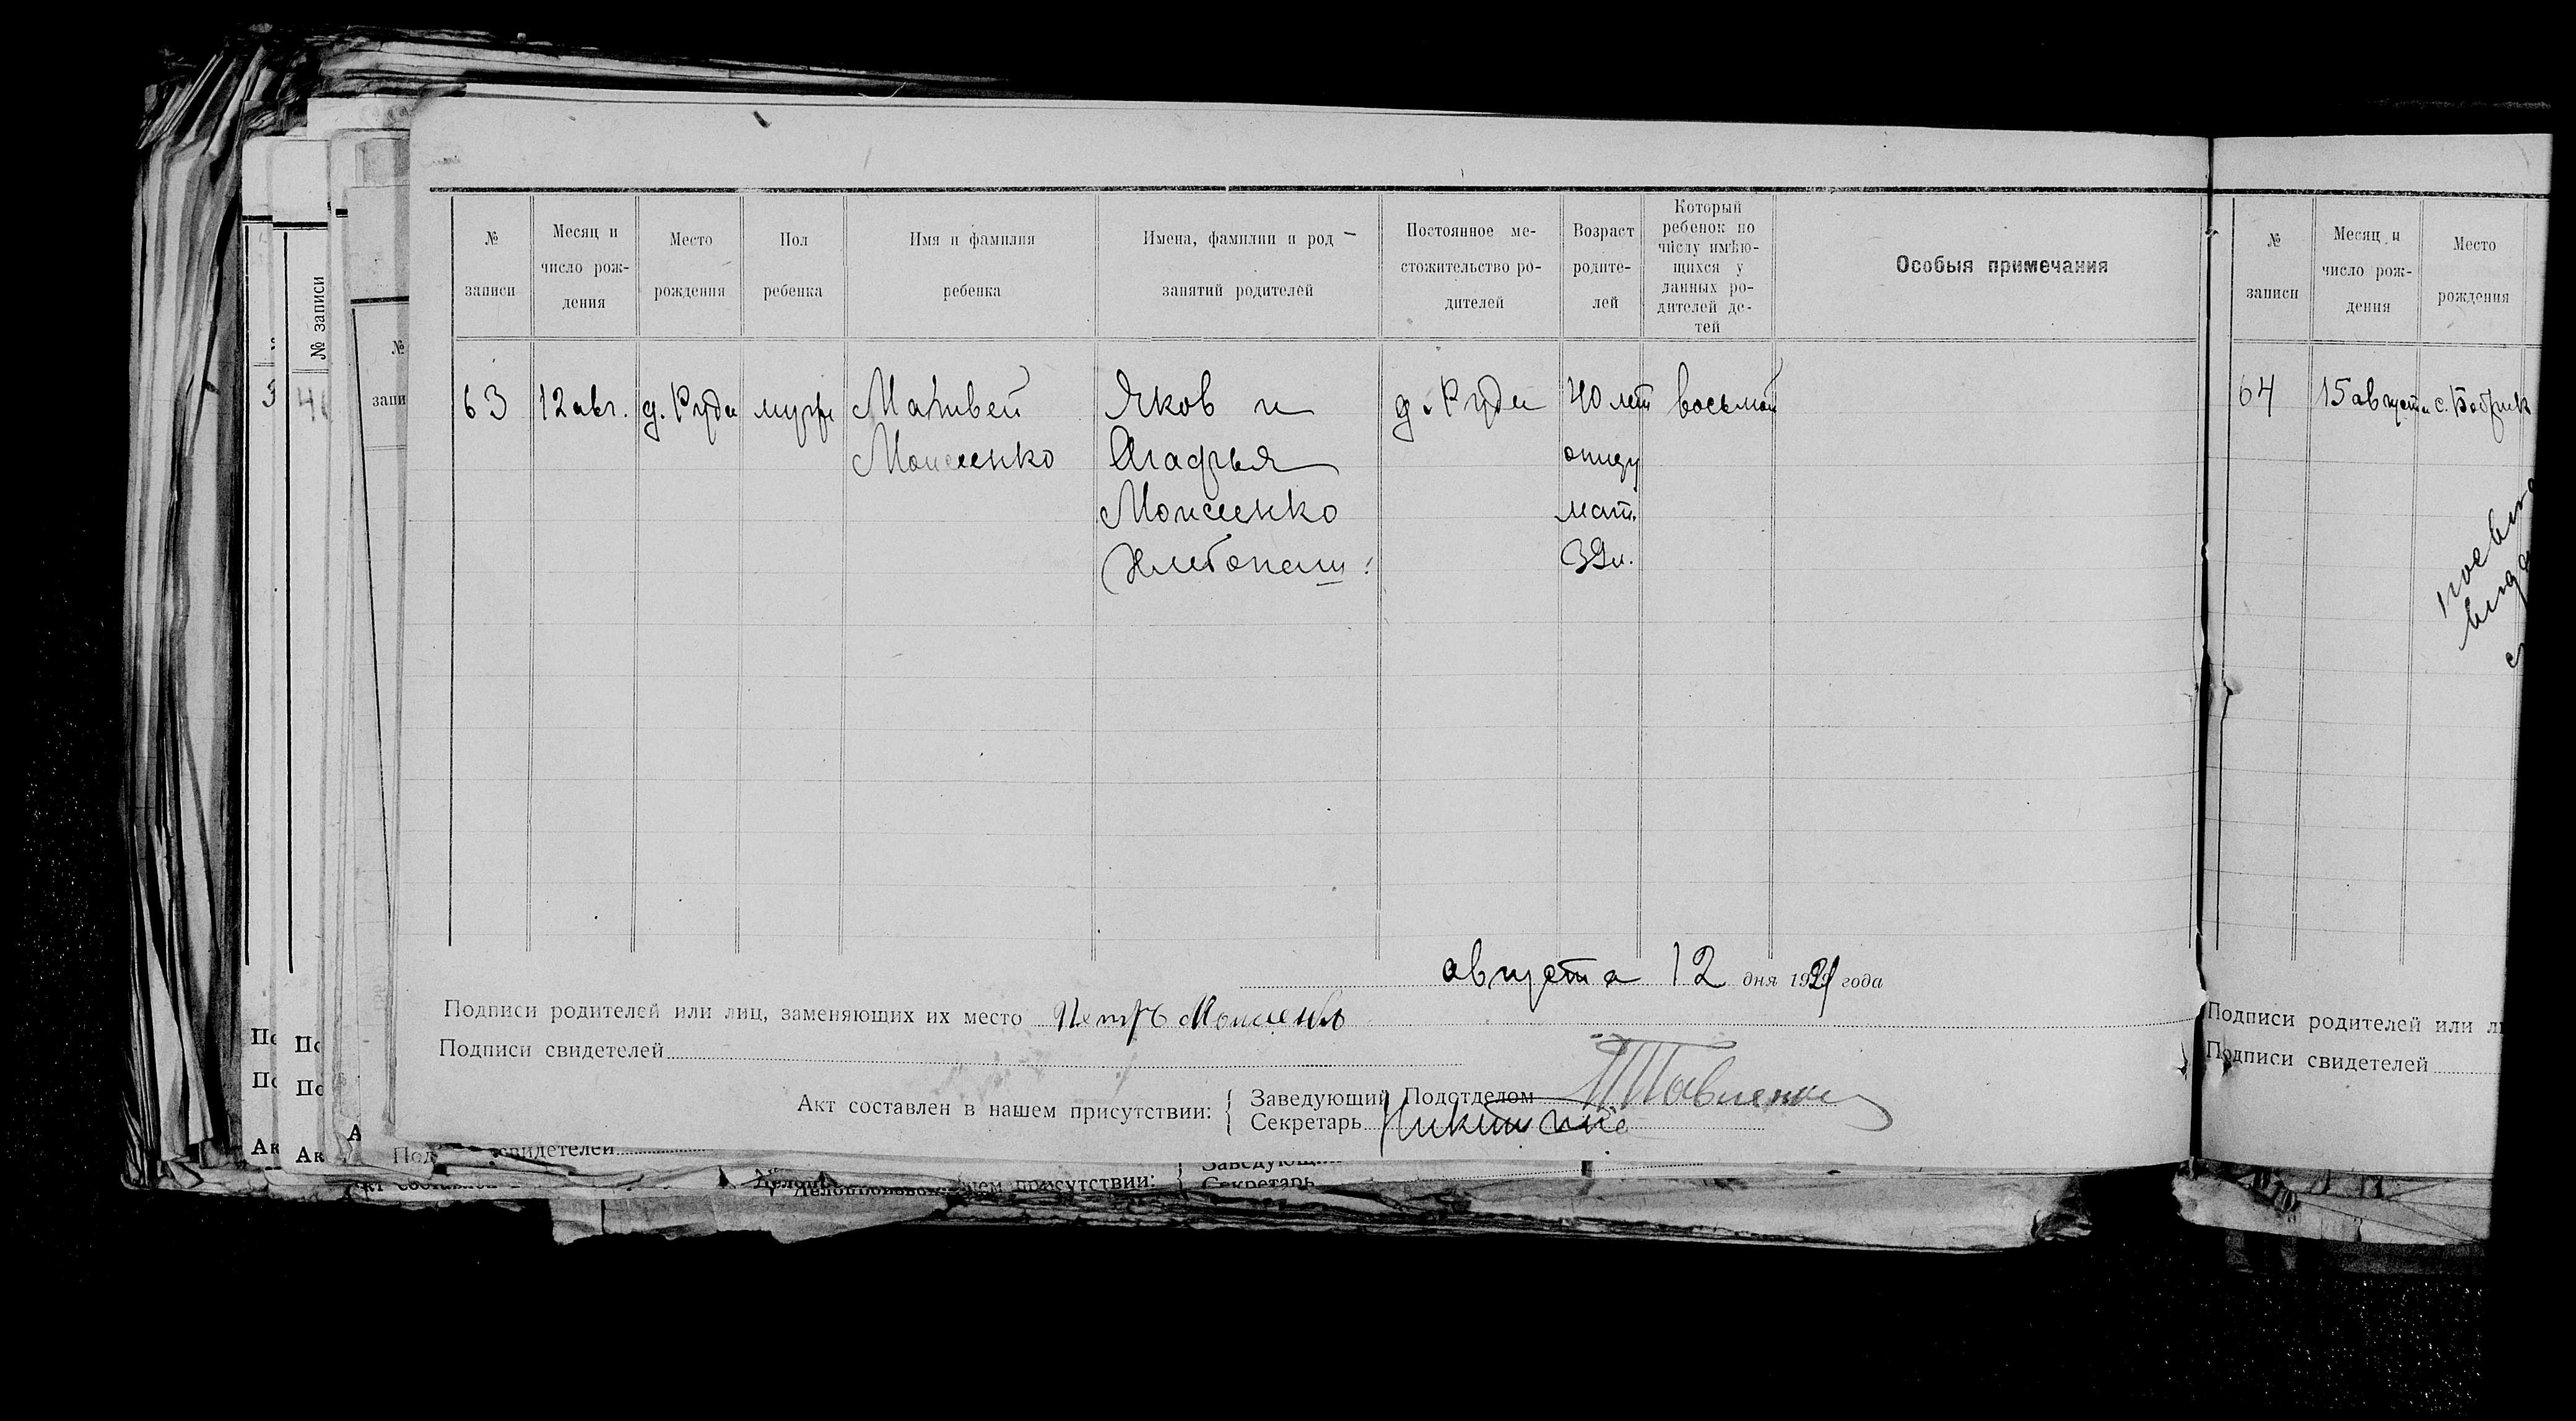 № записи
Месяц и число рождения
Место рождения
Пол ребенка
Имя и фамилия ребенка
Имена, фамилии и род занятий родителей
Постоянное местожительство родителей
Возраст родителей
Который ребенок по числу имѣющихся у данных родителей детей
Особыя примечания
63
12 авг.
д. Руди
мужс
Матвей
Моисеенко
Яков и
Агафья
Моисеенко
Хлебопаш:
д. Руди
40 лет
отцу
мат.
39 л.
восьмой
августа 12 дня 1921 года
Подписи родителей или лиц, заменяющих их место Петръ Моисеенко
Подписи свидетелей
Акт составлен в нашем присутствии:
Заведующий Подотделом
Секретарь
№ записи
Месяц и число рождения
Место рождения
64
15 августа
с. Бобрик
Подписи родителей или
Подписи свидетелей
№ записи
свидетелей
присутствии:
Секретарь